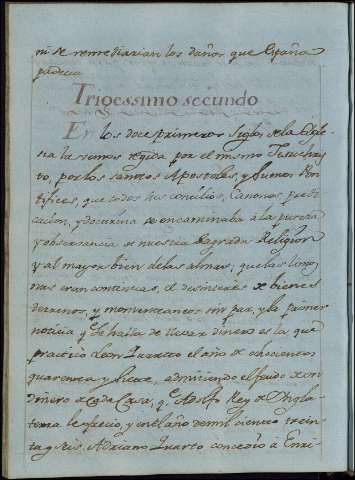 ni se remediarian los daños que España
padecia
Trigessimo secundo
En los doce primeros siglos de la Igle-
sia la vemos regida por el mismo Jesuchris-
to, por los santos Apostoles, y sumos Pon-
tifices, que todos los concilios, Canones, predi-
cacion, y doctrina se encaminaba à la pureza
y observancia de nuestra Sagrada Religion
y al mayor bien de las almas; que las limos-
nas eran continuas, el desinteres de bienes
terrenos, y momentaneos sin par, y la primer
noticia q.e se halla de llevar dinero es la que
practicó Leon Quarto el año de ochocientos
quarenta y siete, admitiendo el feudo de un
dinero de cada Casa, q.e Adolfo Rey de Yngla-
terra le ofrecio, y en el año de mil ciento trein-
ta y seis Adriano Quarto concedio à Enri-